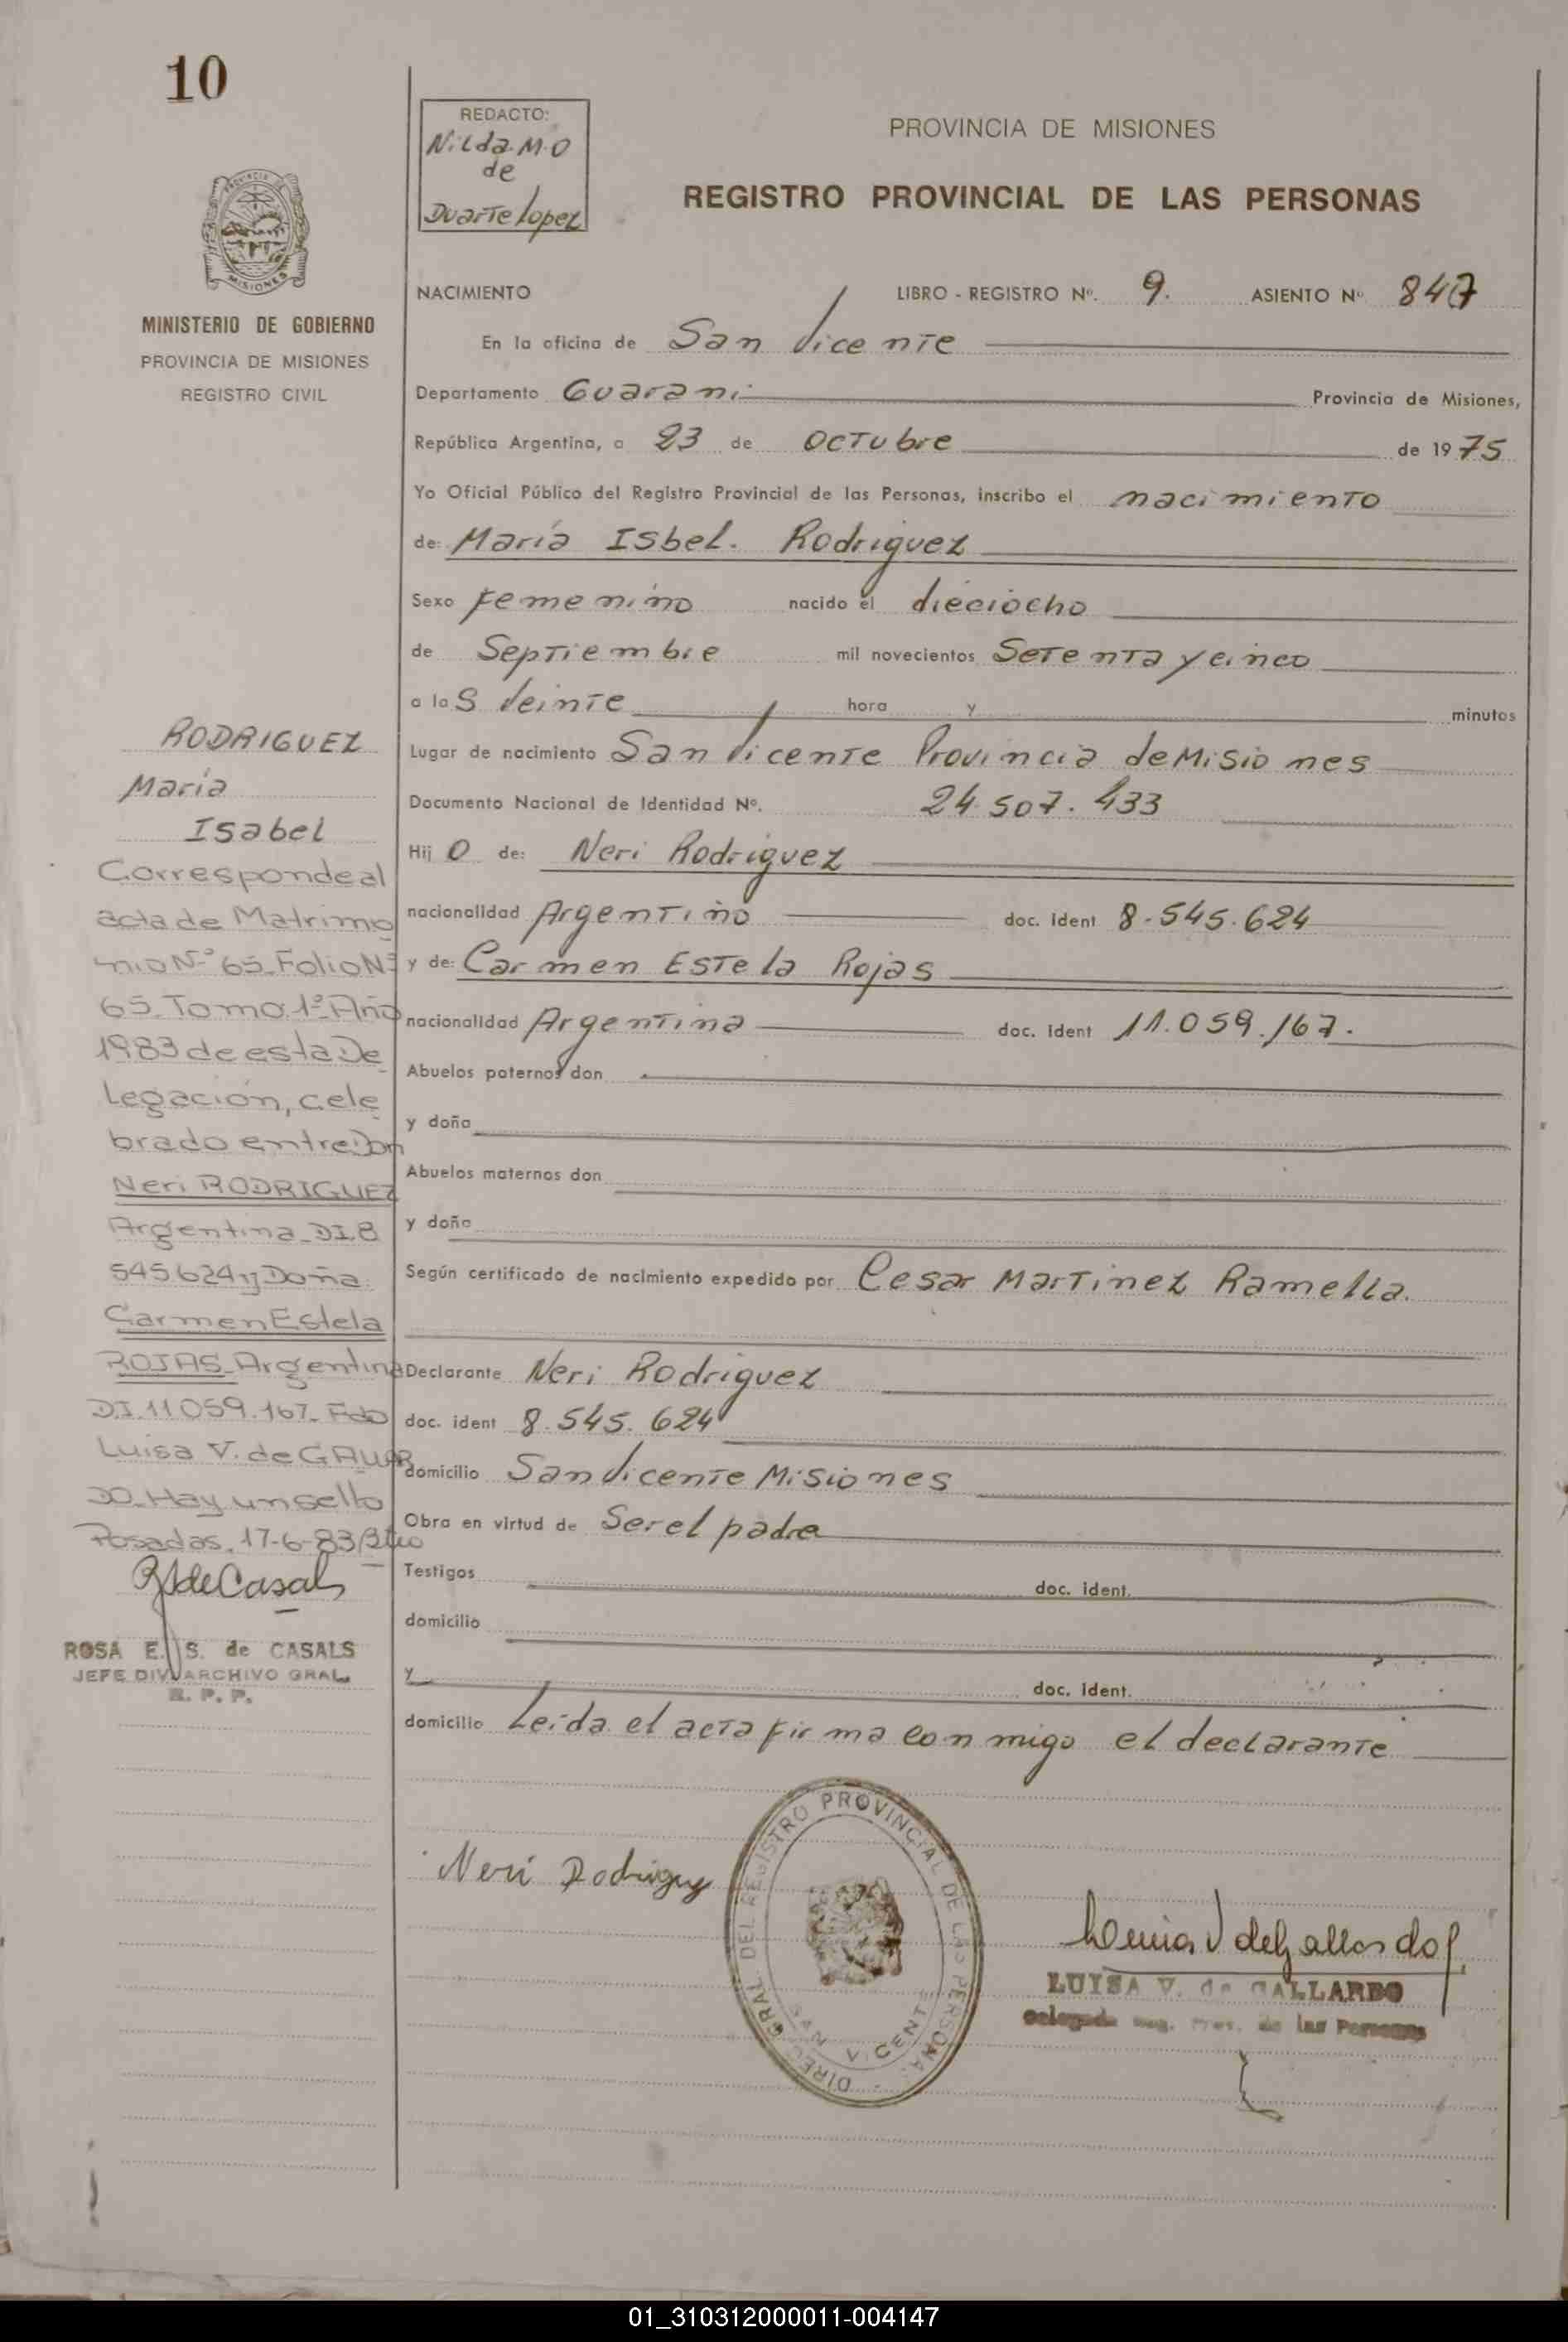 10
REDACTO:
Nilda M.O
de
Duarte Lopez
PROVINCIA DE MISIONES
REGISTRO PROVINCIAL DE LAS PERSONAS
PROVINCIA DE
MISIONES
MINISTERIO DE GOBIERNO
PROVINCIA DE MISIONES
REGISTRO CIVIL
NACIMIENTO LIBRO - REGISTRO Nº. 9. ASIENTO Nº 847
En la oficina de San Vicente
Departamento Guarani Provincia de Misiones,
República Argentina, a 23 de Octubre de 1975
Yo Oficial Público del Registro Provincial de las Personas, inscribo el nacimiento
de: María Isbel. Rodriguez
Sexo Femenino nacido el dieciocho
de Septiembre mil novecientos Setenta y cinco
a las Veinte hora y minutos
Lugar de nacimiento San Vicente Provincia de Misiones
Documento Nacional de Identidad Nº. 24.507.433
Hijo de: Neri Rodriguez
nacionalidad Argentino doc. ident 8.545.624
y de: Carmen Estela Rojas
nacionalidad Argentina doc. ident 11.059.167.
Abuelos paternos don
y doña
Abuelos maternos don
y doña
Según certificado de nacimiento expedido por Cesar Martinez Ramella.
Declarante Neri Rodriguez
doc. ident 8.545.624
domicilio San Vicente Misiones
Obra en virtud de Ser el padre
Testigos doc. ident.
domicilio
y doc. ident.
domicilio Leída el acta firma conmigo el declarante
RODRIGUEZ
María
Isabel
Corresponde al
acta de Matrimo
nio Nº 65 Folio Nº
65 Tomo 1º Año
1983 de esta De
legación, cele
brado entre Don
Neri RODRIGUEZ
Argentina DI.8
545624 y Doña
Carmen Estela
ROJAS Argentina
D.I. 11.059.167. Fdo
Luisa V. de GALLAR
DO. Hay un sello
Posadas, 17-6-83
RSdeCasals
ROSA E. S. de CASALS
JEFE DIV. ARCHIVO GRAL.
R. P. P.
Neri Rodriguez
DIREC. GRAL. DEL REGISTRO PROVINCIAL DE LAS PERSONAS
SAN VICENTE
Luisa V de Gallardo
LUISA V. de GALLARDO
Delegada Reg. Prov. de las Personas
01_310312000011-004147